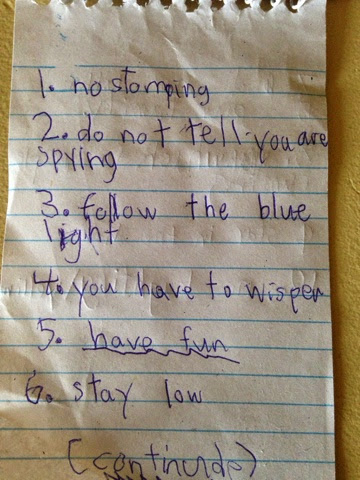 1. no stomping
2. do not tell you are
spying
3. follow the blue
light
4. you have to wisper
5. have fun
6. stay low
(continude)